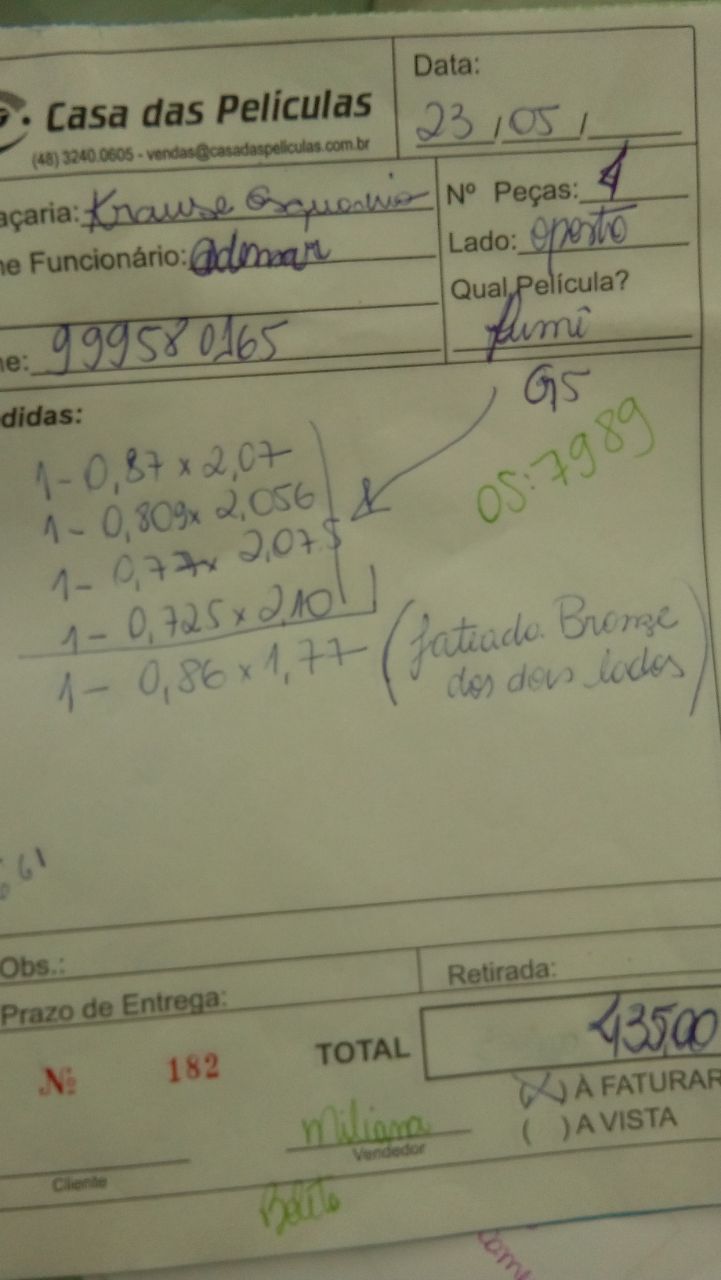 Casa das Películas
(48) 3240.0605 - vendas@casadaspeliculas.com.br
Data:
23 / 05 /
açaria: Krause Esquadria
Nº Peças:
e Funcionário: Ademar
Lado: oposto
Qual Película?
fumê
G5
ne: 999580165
didas:
OS: 7989
1 - 0,87 x 2,07
1 - 0,809 x 2,056
1 - 0,77 x 2,075
1 - 0,725 x 2,10
1 - 0,86 x 1,77 (fatiado Bronze
dos dois lados)
61
Obs.:
Retirada:
Prazo de Entrega:
TOTAL 435,00
Nº 182
(X) À FATURAR
( ) A VISTA
Miliana
Vendedor
Cliente